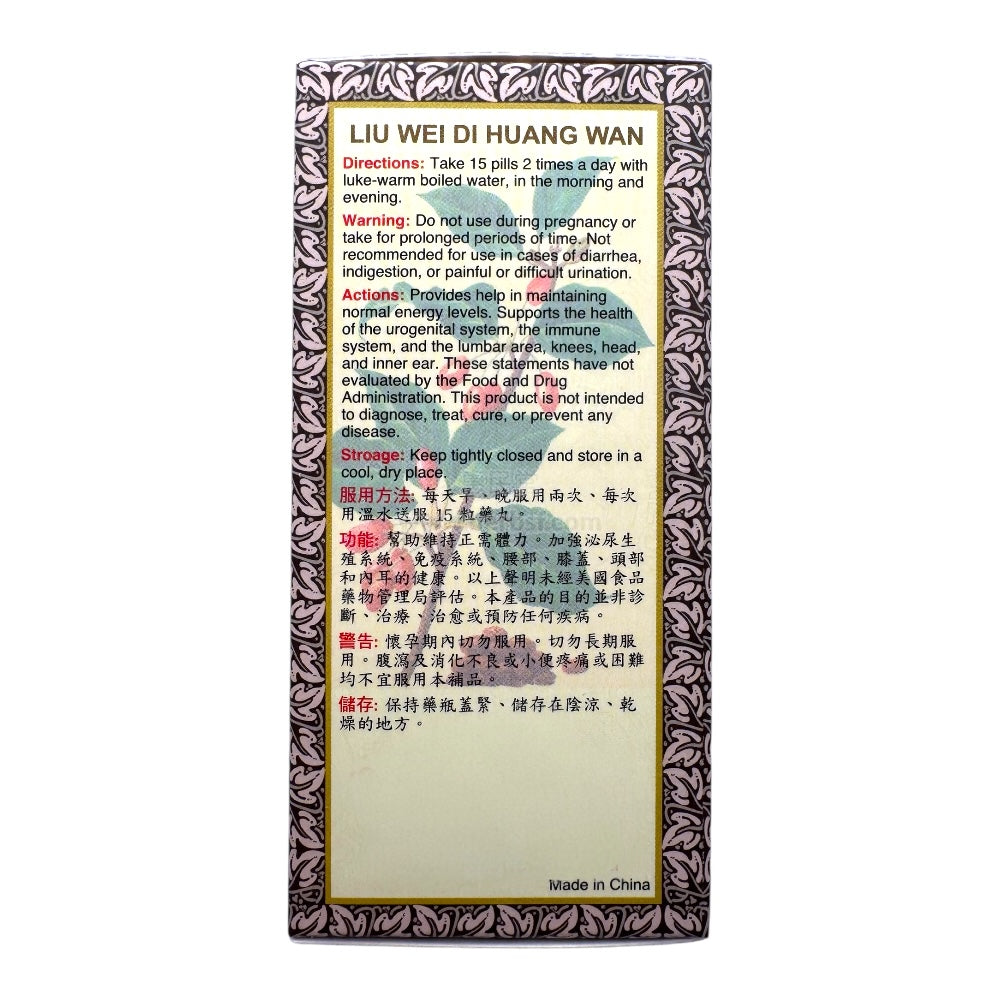 LIU WEI DI HUANG WAN
Directions: Take 15 pills 2 times a day with
luke-warm boiled water, in the morning and
evening.
Warning: Do not use during pregnancy or
take for prolonged periods of time. Not
recommended for use in cases of diarrhea,
indigestion, or painful or difficult urination.
Actions: Provides help in maintaining
normal energy levels. Supports the health
of the urogenital system, the immune
system, and the lumbar area, knees, head,
and inner ear. These statements have not
evaluated by the Food and Drug
Administration. This product is not intended
to diagnose, treat, cure, or prevent any
disease.
Stroage: Keep tightly closed and store in a
cool, dry place.
服用方法: 每天早、晚服用兩次、每次
用溫水送服 15 粒藥丸。
功能: 幫助維持正需體力。加強泌尿生
殖系統、免疫系統、腰部、膝蓋、頭部
和內耳的健康。以上聲明未經美國食品
藥物管理局評估。本產品的目的並非診
斷、治療、治愈或預防任何疾病。
警告: 懷孕期內切勿服用。切勿長期服
用。腹瀉及消化不良或小便疼痛或困難
均不宜服用本補品。
儲存: 保持藥瓶蓋緊、儲存在陰涼、乾
燥的地方。
Made in China